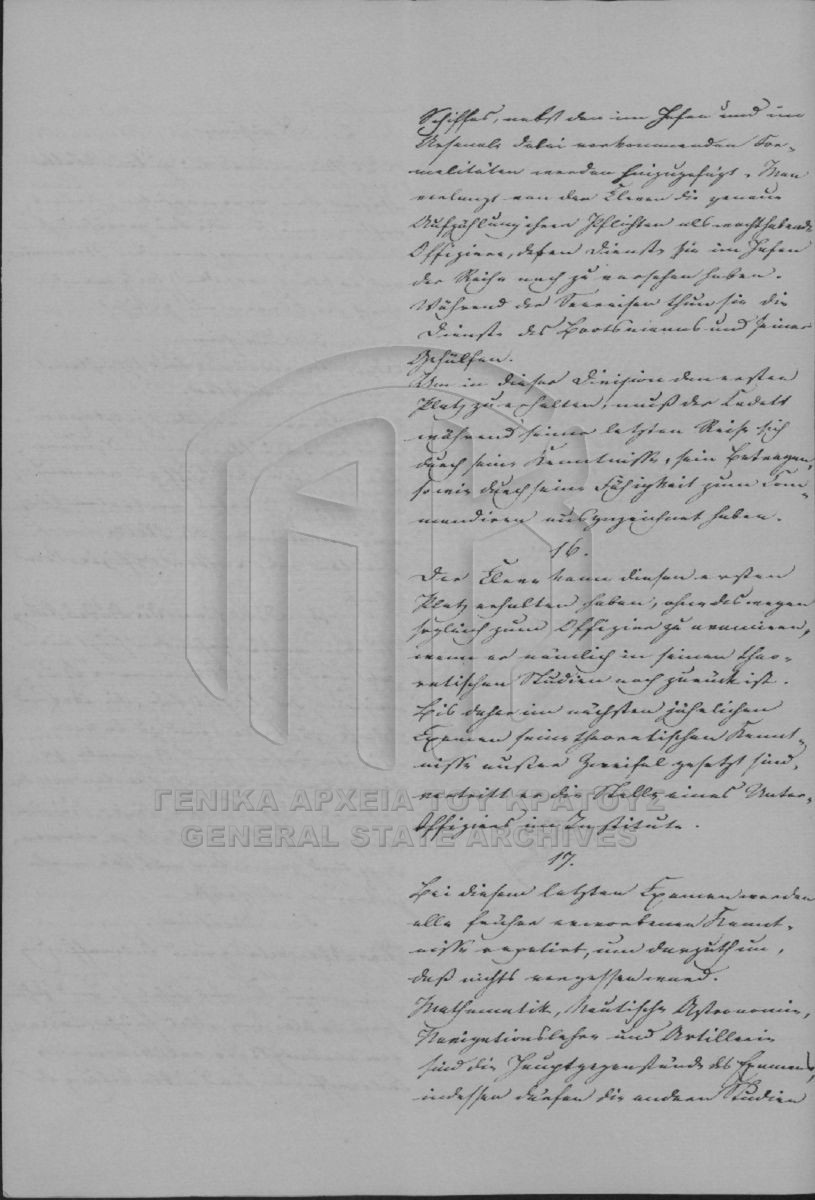 Schiffes, nebst den im Hafen und im
Arsenale dabei vorkommenden For-
malitäten werden hinzugefügt. Man
verlangt von den Eleven die genaue
Aufzählung ihrer Pflichten als wachthabende
Offiziere, deßen Dienste sie im Hafen
der Reihe nach zu versehen haben.
Während der Seereisen thun sie die
Dienste des Bootsmanns und seiner
Gehülfen.
Um in dieser Division den ersten
Platz zu erhalten, muß der Kadett
während seiner letzten Reise sich
durch seine Kenntnisse, sein Betragen,
sowie durch seine Fähigkeit zum Com-
mandiren ausgezeichnet haben.
16.
Der Eleve kann diesen ersten
Platz erhalten haben, ohne deswegen
sogleich zum Offizier zu avanciren,
wenn er nämlich in seinen theo-
retischen Studien noch zurück ist.
Bis daher im nächsten jährlichen
Examen seine theoretischen Kennt-
nisse außer Zweifel gesetzt sind,
vertritt er die Stelle eines Unter-
Offiziers im Institute.
17.
Bei diesem letzten Examen werden
alle früher erworbenen Kennt-
nisse repetirt, um darzuthun,
daß nichts vergessen ward.
Mathematik, Nautische Astronomie,
Navigationslehre und Artillerie
sind die Hauptgegenstände des Examens,
indessen dürfen die andern Studien
ΓΕΝΙΚΑ ΑΡΧΕΙΑ ΤΟΥ ΚΡΑΤΟΥΣ
GENERAL STATE ARCHIVES